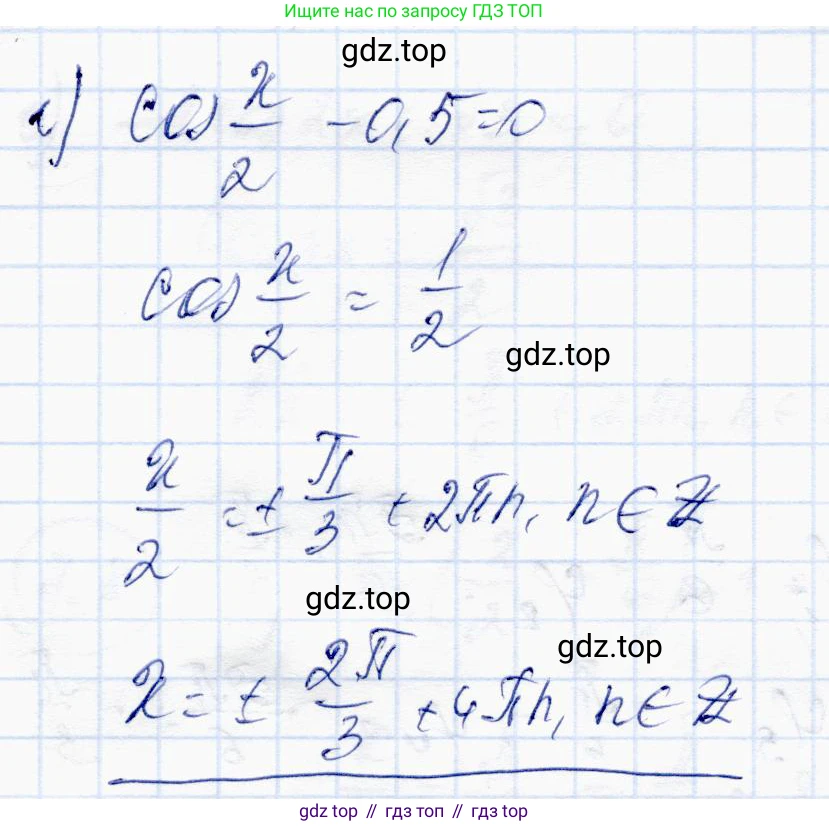 Ищите нас по запросу ГДЗ ТОП
gdz.top
a) cos x/2 - 0,5 = 0
cos x/2 = 1/2
gdz.top
x/2 = ± π/3 + 2πn, n ∈ Z
gdz.top
gdz.top
x = ± 2π/3 + 4πn, n ∈ Z
gdz top // гдз топ // гдз top